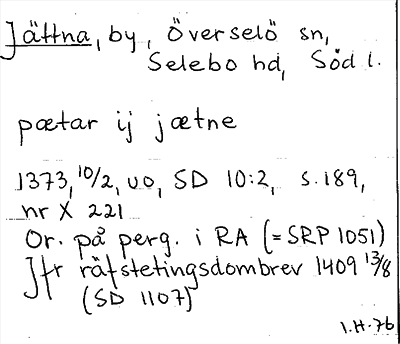 Jättna, by, Överselö sn,
Selebo hd, Söd l.
pætar ij jætne
1373, 10/2, uo, SD 10:2, s. 189,
nr X 221
Or. på perg. i RA (= SRP 1051)
Jfr räfstetingsdombrev 1409 13/8
(SD 1107)
I.H. 76